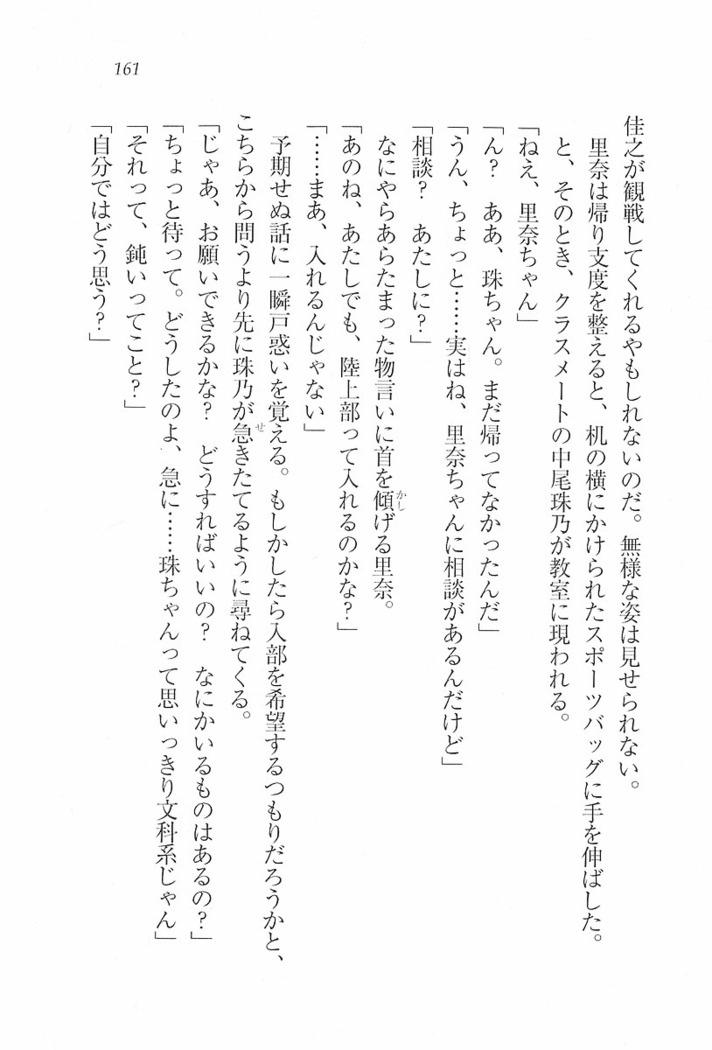 161
佳之が観戦してくれるやもしれないのだ。無様な姿は見せられない。
　里奈は帰り支度を整えると、机の横にかけられたスポーツバッグに手を伸ばした。
　と、そのとき、クラスメートの中尾珠乃が教室に現われる。
「ねえ、里奈ちゃん」
「ん？　ああ、珠ちゃん。まだ帰ってなかったんだ」
「うん、ちょっと……実はね、里奈ちゃんに相談があるんだけど」
「相談？　あたしに？」
　なにやらあらたまった物言いに首を傾かしげる里奈。
「あのね、あたしでも、陸上部って入れるのかな？」
「……まあ、入れるんじゃない」
　予期せぬ話に一瞬戸惑いを覚える。もしかしたら入部を希望するつもりだろうかと、
こちらから問うより先に珠乃が急せきたてるように尋ねてくる。
「じゃあ、お願いできるかな？　どうすればいいの？　なにかいるものはあるの？」
「ちょっと待って。どうしたのよ、急に……珠ちゃんって思いっきり文科系じゃん」
「それって、鈍いってこと？」
「自分ではどう思う？」